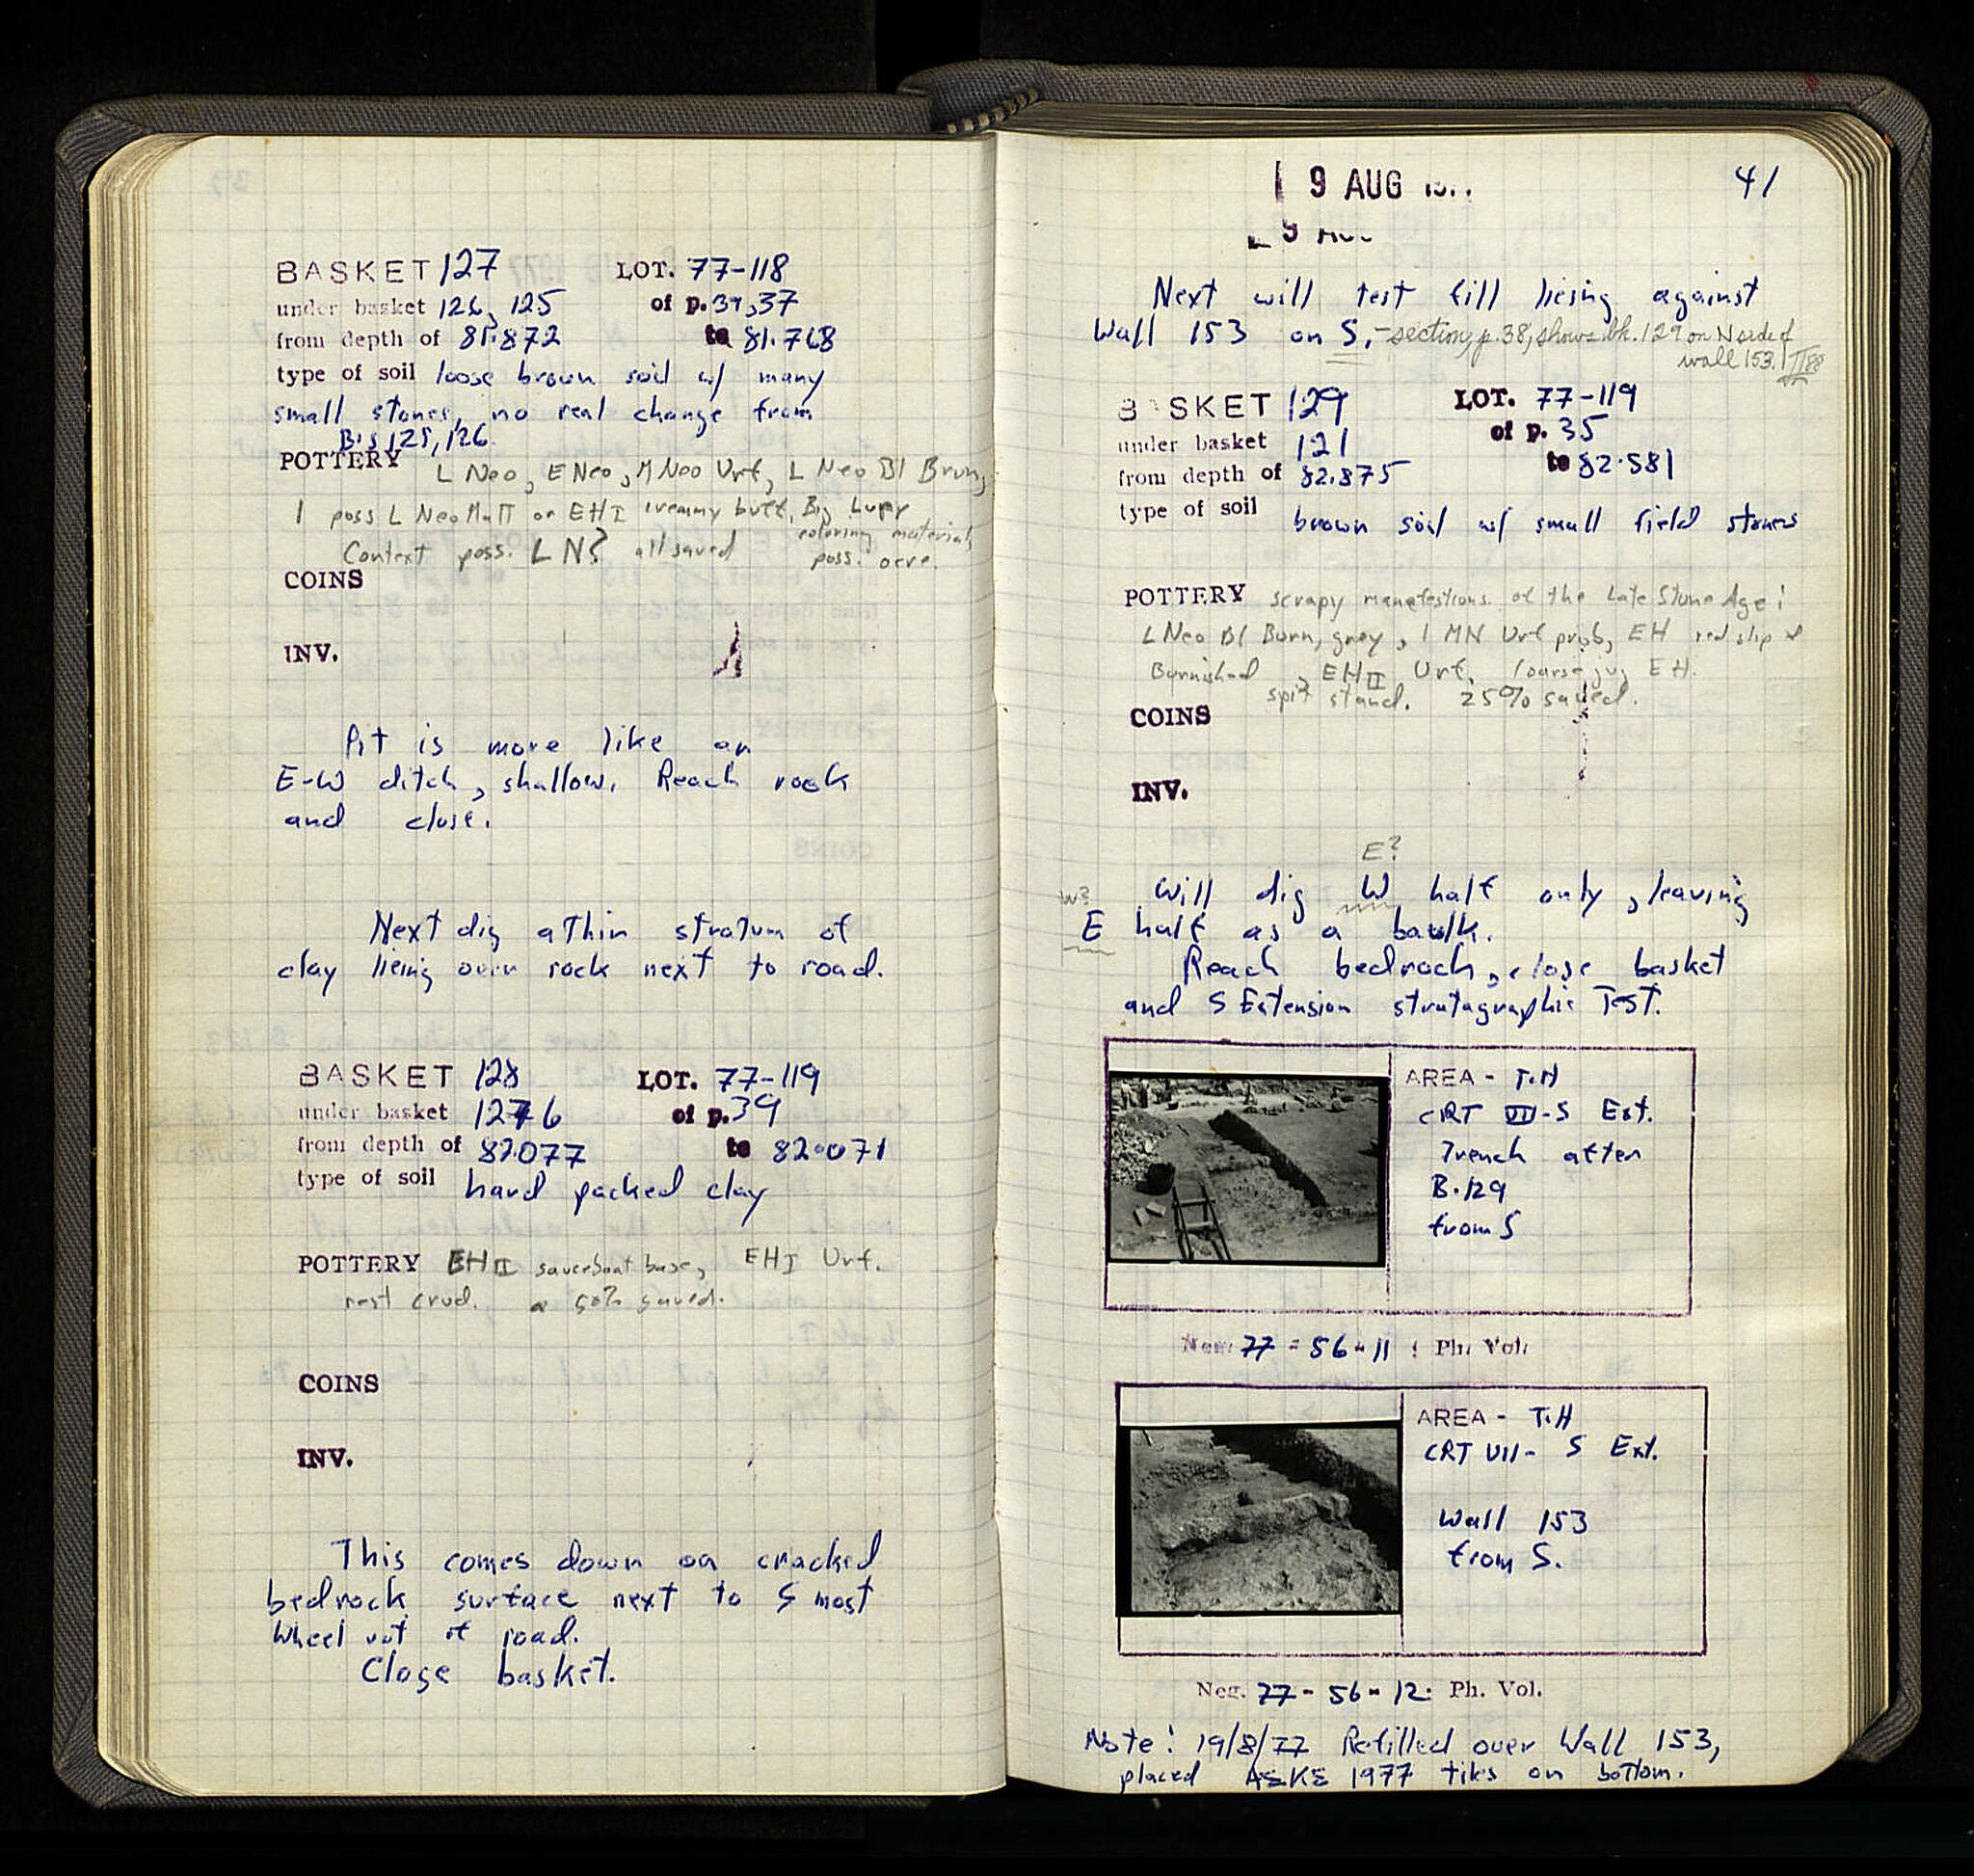 BASKET 127 LOT. 77-118
under basket 126, 125 of p. 39,37
from depth of 81.872 to 81.768
type of soil loose brown soil w/ many
small stones, no real change from
B's 125, 126.
POTTERY L Neo, E Neo, M Neo Urf, L Neo Bl Brun,
1 poss L Neo Matt or EH I creamy buff, Big Lump
coloring material,
Context poss. L N? all saved poss. ocre.
COINS
INV.
Pit is more like an
E-W ditch, shallow. Reach rock
and close.
Next dig a thin stratum of
clay lieing over rock next to road.
BASKET 128 LOT. 77-119
under basket 126 of p. 39
from depth of 82.077 to 82.071
type of soil hard packed clay
POTTERY EH II sauceboat base, EH I Urf.
rest crud. 50% saved.
COINS
INV.
This comes down on cracked
bedrock surface next to S most
wheel rut of road.
Close basket.
19 AUG
41
Next will test fill liesing against
Wall 153 on S. - section, p. 38, shows bk. 129 on N side of
wall 153. II 88
BASKET 129 LOT. 77-119
under basket 121 of p. 35
from depth of 82.875 to 82.581
type of soil brown soil w/ small field stones
POTTERY scrapy manefestions of the Late Stone Age:
L Neo Bl Burn, grey, 1 MN Urf prob, EH red slip &
Burnished, EH II Urf, coarse jug EH.
spit stand. 25% saved.
COINS
INV.
E?
W? Will dig W half only, leaving
E half as a baulk.
Reach bedrock, close basket
and S Extension stratagraphic Test.
AREA - T.H
CRT VII-S Ext.
Trench after
B.129
from S
Neg. 77-56-11 Ph. Vol.
AREA - T.H
CRT VII- S Ext.
Wall 153
from S.
Neg. 77-56-12 Ph. Vol.
Note: 19/8/77 Refilled over Wall 153,
placed ΑΣΚΣ 1977 tiles on bottom.